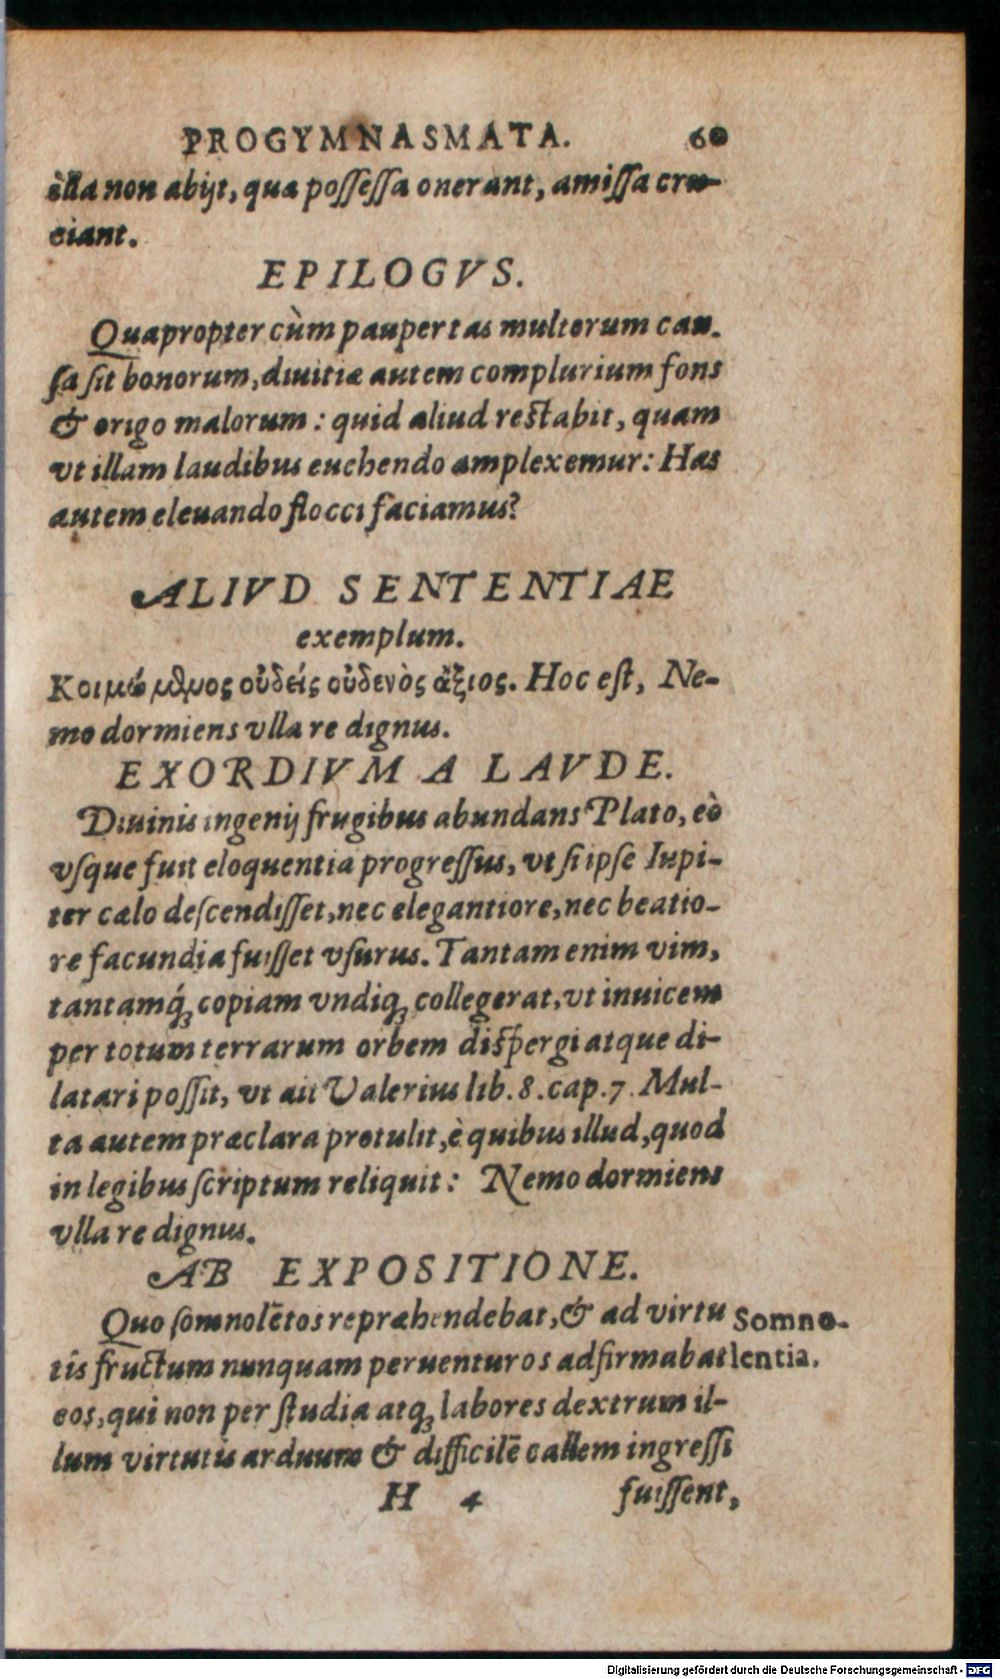 PROGYMNASMATA. 60
illa non abijt, qua possessa onerant, amissa cru-
ciant.
EPILOGVS.
Quapropter cùm paupertas multorum cau-
sa sit bonorum, diuitiæ autem complurium fons
& origo malorum: quid aliud restabit, quam
vt illam laudibus euehendo amplexemur: Has
autem eleuando flocci faciamus?
ALIVD SENTENTIAE
exemplum.
Κοιμώμϟμος οὐδείς οὐδενὸς ἄξιος. Hoc est, Ne-
mo dormiens vlla re dignus.
EXORDIVM A LAVDE.
Diuinis ingenij frugibus abundans Plato, eò
vsque fuit eloquentia progressus, vt si ipse Iupi-
ter cælo descendisset, nec elegantiore, nec beatio-
re facundia fuisset vsurus. Tantam enim vim,
tantamq́ꝫ copiam vndiqꝫ collegerat, vt inuicem
per totum terrarum orbem dispergi atque di-
latari possit, vt ait Valerius lib. 8. cap. 7. Mul-
ta autem præclara protulit, è quibus illud, quod
in legibus scriptum reliquit: Nemo dormiens
vlla re dignus.
AB EXPOSITIONE.
Quo somnolētos repræhendebat, & ad virtu Somno-
tis fructum nunquam peruenturos adfirmabat lentia.
eos, qui non per studia atqꝫ labores dextrum il-
lum virtutis arduum & difficilē callem ingressi
H 4 fuissent,
Digitalisierung gefördert durch die Deutsche Forschungsgemeinschaft - DFG